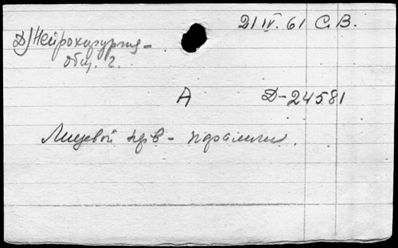 21 IV. 61 С.В.
Д) Нейрохирургия -
общ. г.
А Д-24581
Лицевой нрв - параличи.